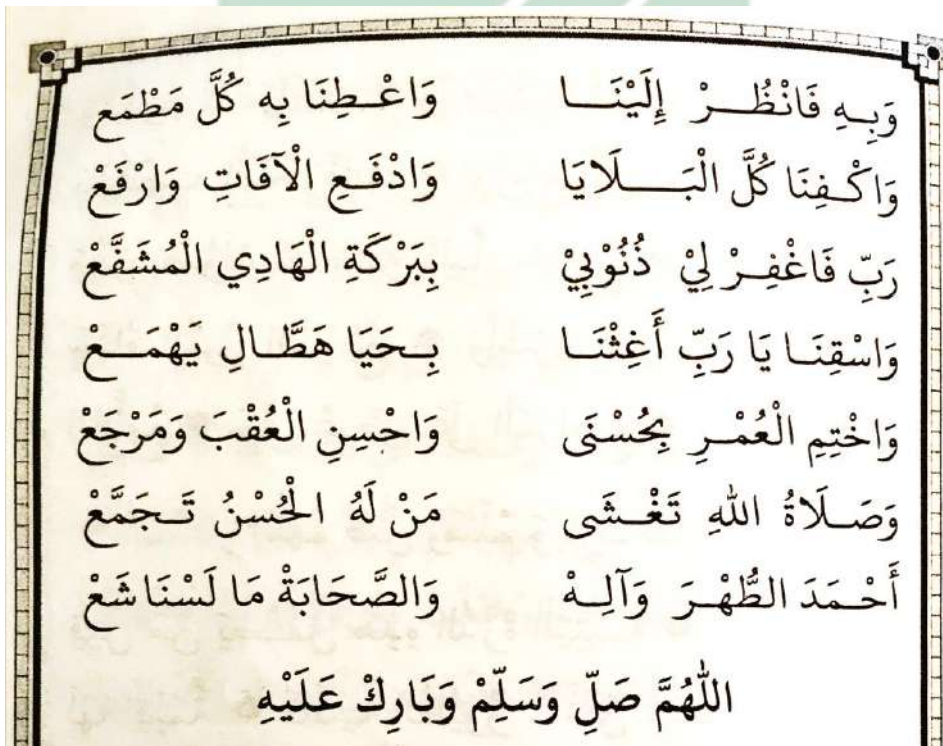 وَبِهِ فَانْظُرْ إِلَيْنَا وَاعْطِنَا بِه كُلَّ مَطْمَع
وَاكْفِنَا كُلَّ الْبَلَايَا وَادْفَعِ الْآفَاتِ وَارْفَعْ
رَبِّ فَاغْفِرْ لِيْ ذُنُوْبِيْ بِبَرْكَةِ الْهَادِي الْمُشَفَّعْ
وَاسْقِنَا يَا رَبِّ أَغِثْنَا بِحَيَا هَطَّالِ يَهْمَعْ
وَاخْتِمِ الْعُمْرِ بِحُسْنَى وَاحْسِنِ الْعُقْبَ وَمَرْجَعْ
وَصَلَاةُ اللهِ تَغْشَى مَنْ لَهُ الْحُسْنُ تَجَمَّعْ
أَحْمَدَ الطُّهْرَ وَآلِهْ وَالصَّحَابَةْ مَا لَسْنَا شَعْ
اللّٰهُمَّ صَلِّ وَسَلِّمْ وَبَارِكْ عَلَيْهِ